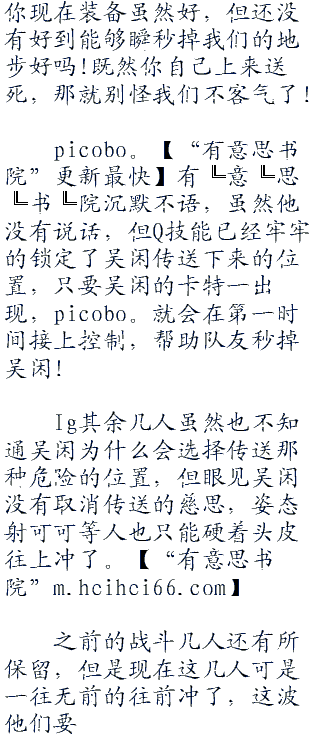 你现在装备虽然好，但还没
有好到能够瞬秒掉我们的地
步好吗!既然你自己上来送
死，那就别怪我们不客气了!
picobo。【“有意思书
院”更新最快】有╚意╚思
╚书╚院沉默不语，虽然他
没有说话，但Q技能已经牢牢
的锁定了吴闲传送下来的位
置，只要吴闲的卡特一出
现，picobo。就会在第一时
间接上控制，帮助队友秒掉
吴闲!
Ig其余几人虽然也不知
通吴闲为什么会选择传送那
种危险的位置，但眼见吴闲
没有取消传送的慈思，姿态
射可可等人也只能硬着头皮
往上冲了。【“有意思书
院”m.hcihci66.com】
之前的战斗几人还有所
保留，但是现在这几人可是
一往无前的往前冲了，这波
他们要